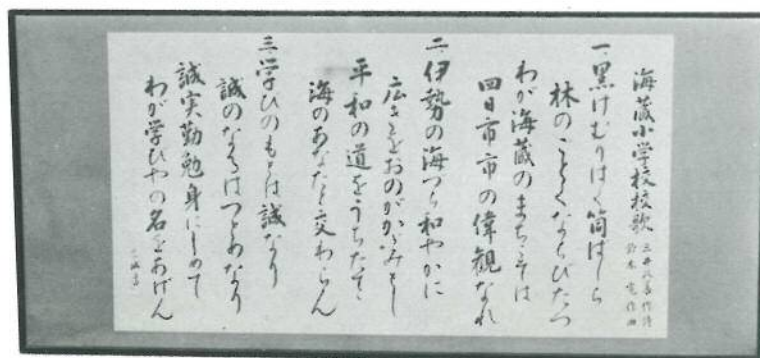 海蔵小学校校歌
作詩
鈴木 作曲
一、黒けむりはく筒はしら
林のごとくならびたつ
わが海蔵のまちこそは
四日市市の偉観なれ
二、伊勢の海づら和やかに
広きをおのがかがみとし
平和の道をうちたてて
海のあなたと交わらん
三、学びのもとは誠なり
誠のなるはつとめなり
誠実勤勉身にしめて
わが学びやの名をあげん